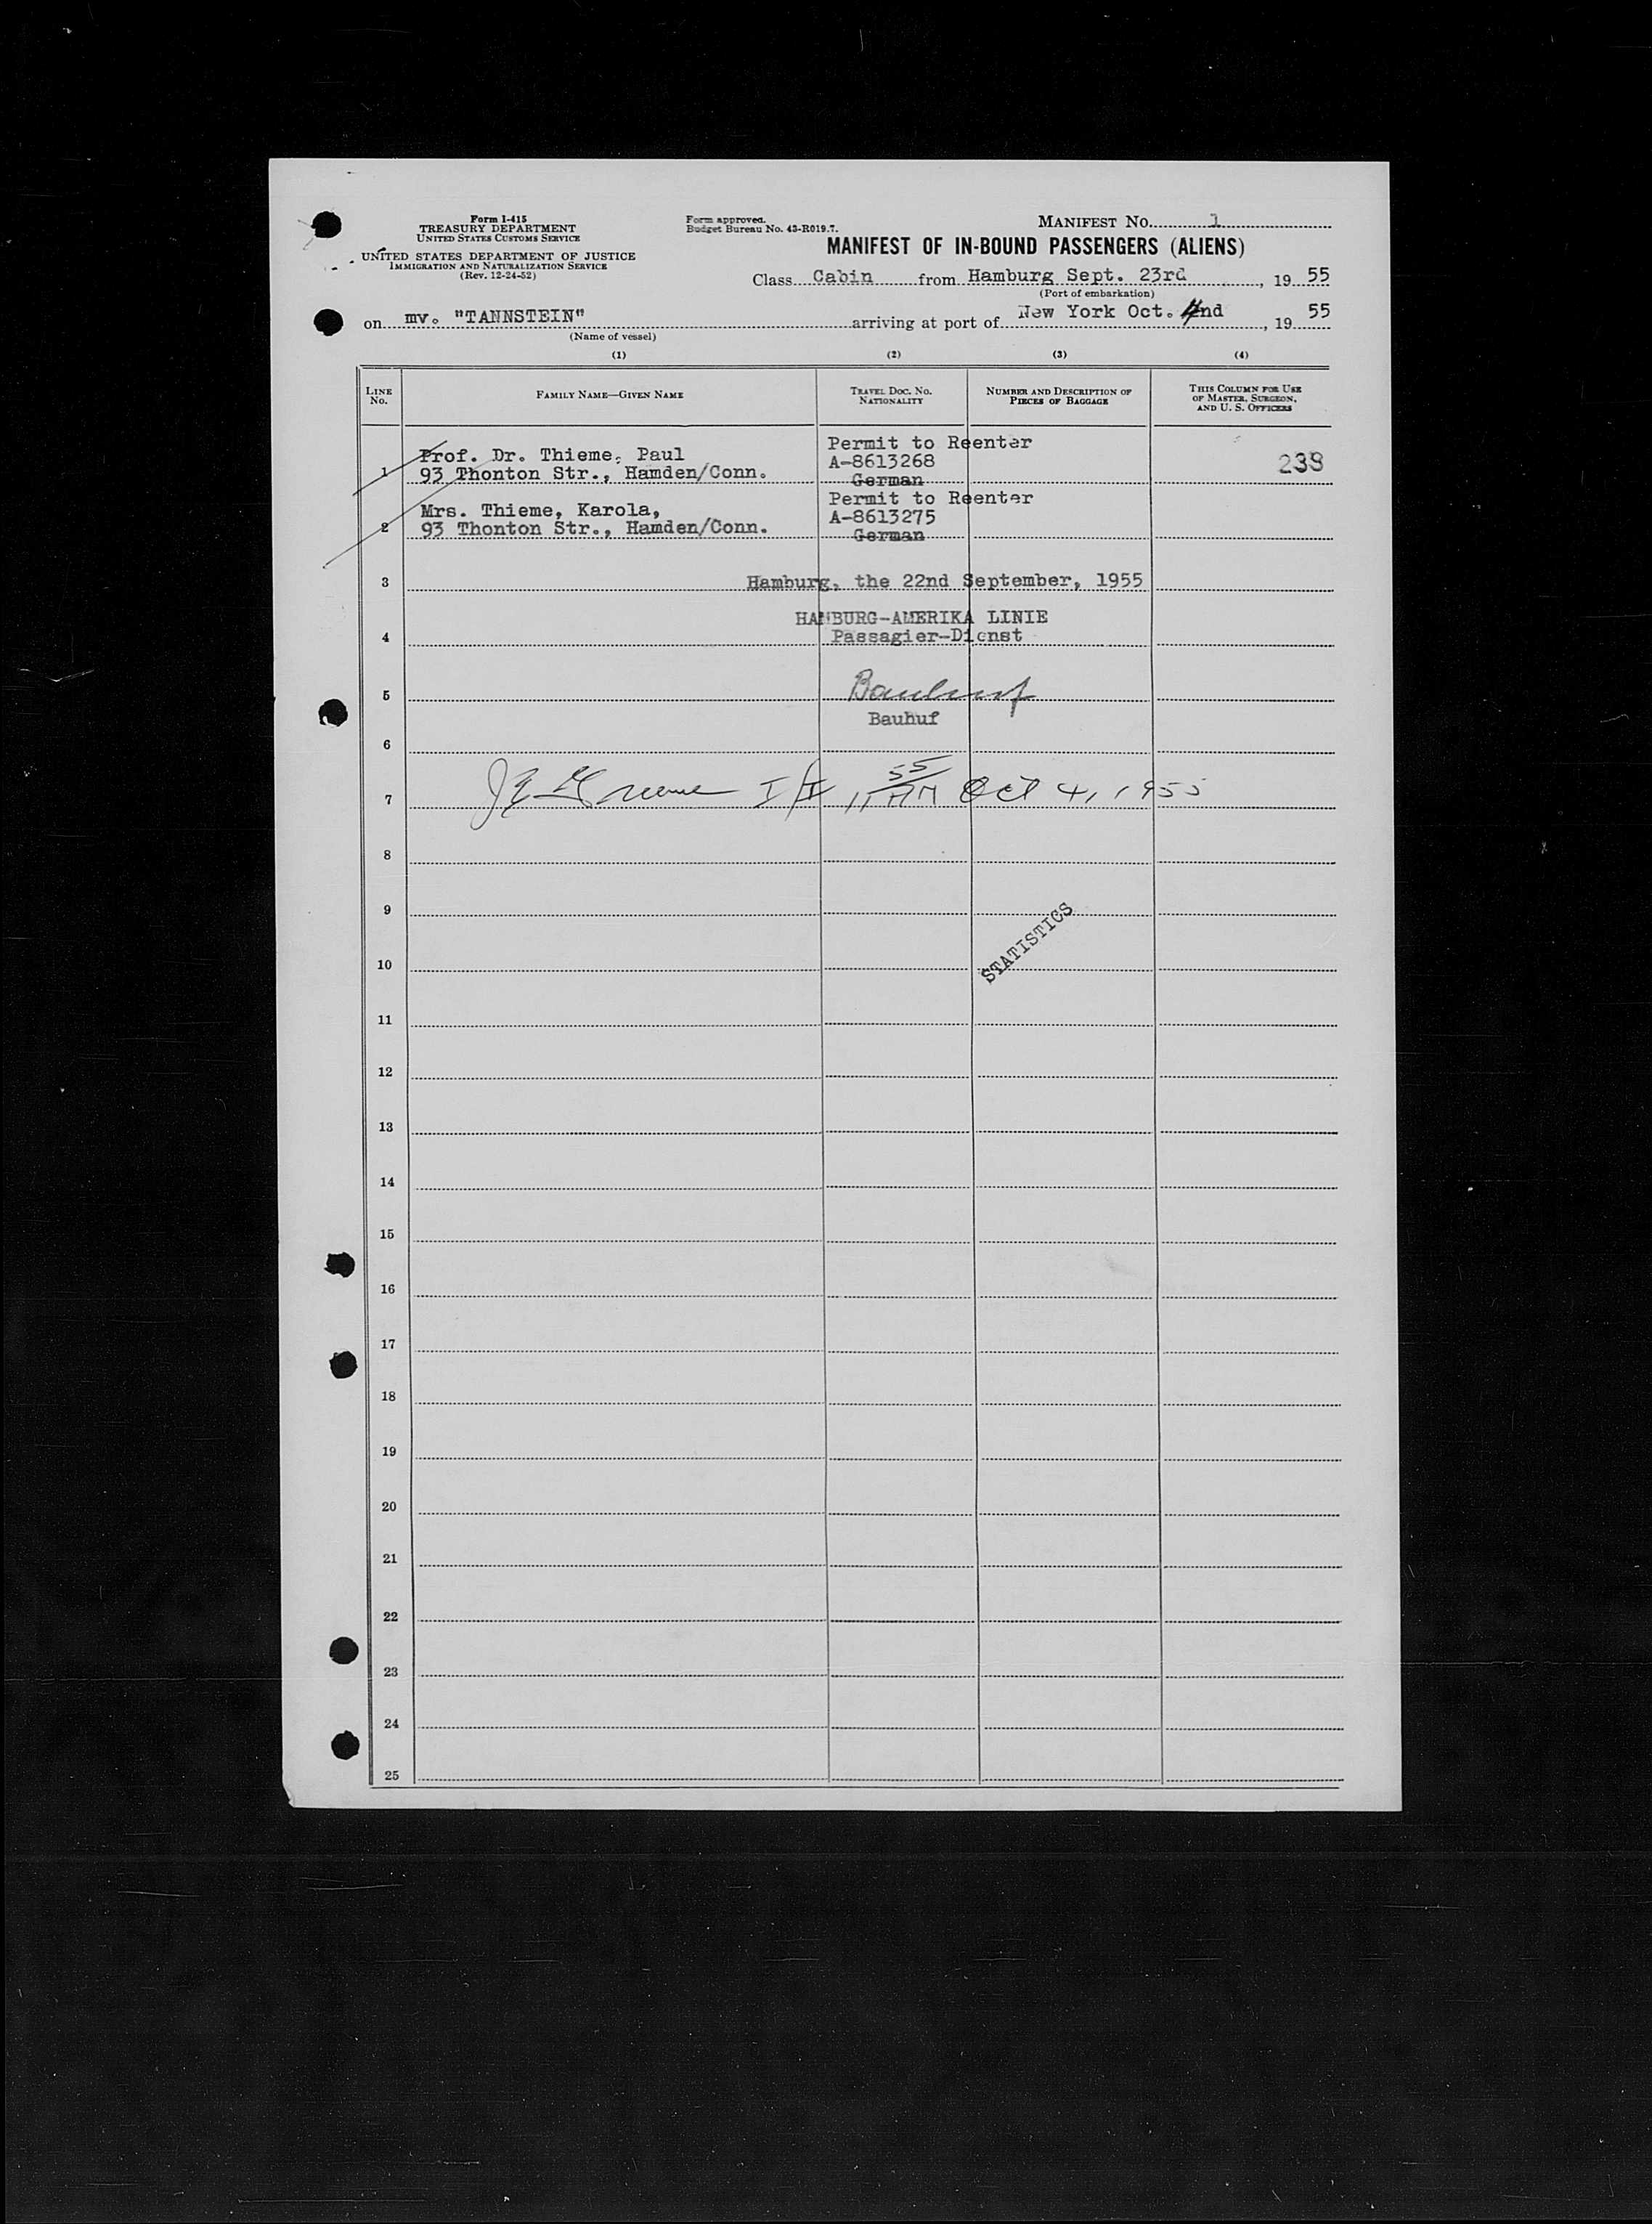 Form I-415
TREASURY DEPARTMENT
UNITED STATES CUSTOMS SERVICE
UNITED STATES DEPARTMENT OF JUSTICE
IMMIGRATION AND NATURALIZATION SERVICE
(Rev. 12-24-52)
Form approved.
Budget Bureau No. 43-R019.7.
MANIFEST No. 1
MANIFEST OF IN-BOUND PASSENGERS (ALIENS)
Class Cabin from Hamburg Sept. 23rd, 19 55
(Port of embarkation)
on mv. "TANNSTEIN" arriving at port of New York Oct. 4nd, 19 55
(Name of vessel)
(1) (2) (3) (4)
LINE No. FAMILY NAME—GIVEN NAME TRAVEL DOC. No. NATIONALITY NUMBER AND DESCRIPTION OF PIECES OF BAGGAGE THIS COLUMN FOR USE OF MASTER, SURGEON, AND U. S. OFFICERS
Prof. Dr. Thieme, Paul Permit to Reenter
1 93 Thonton Str., Hamden/Conn. A-8613268 238
German
Mrs. Thieme, Karola, Permit to Reenter
2 93 Thonton Str., Hamden/Conn. A-8613275
German
3 Hamburg, the 22nd September, 1955
HAMBURG-AMERIKA LINIE
4 Passagier-Dienst
5 Bauhuf
Bauhuf
6
7 11 55 AM Oct 4, 1955
8
9
STATISTICS
10
11
12
13
14
15
16
17
18
19
20
21
22
23
24
25